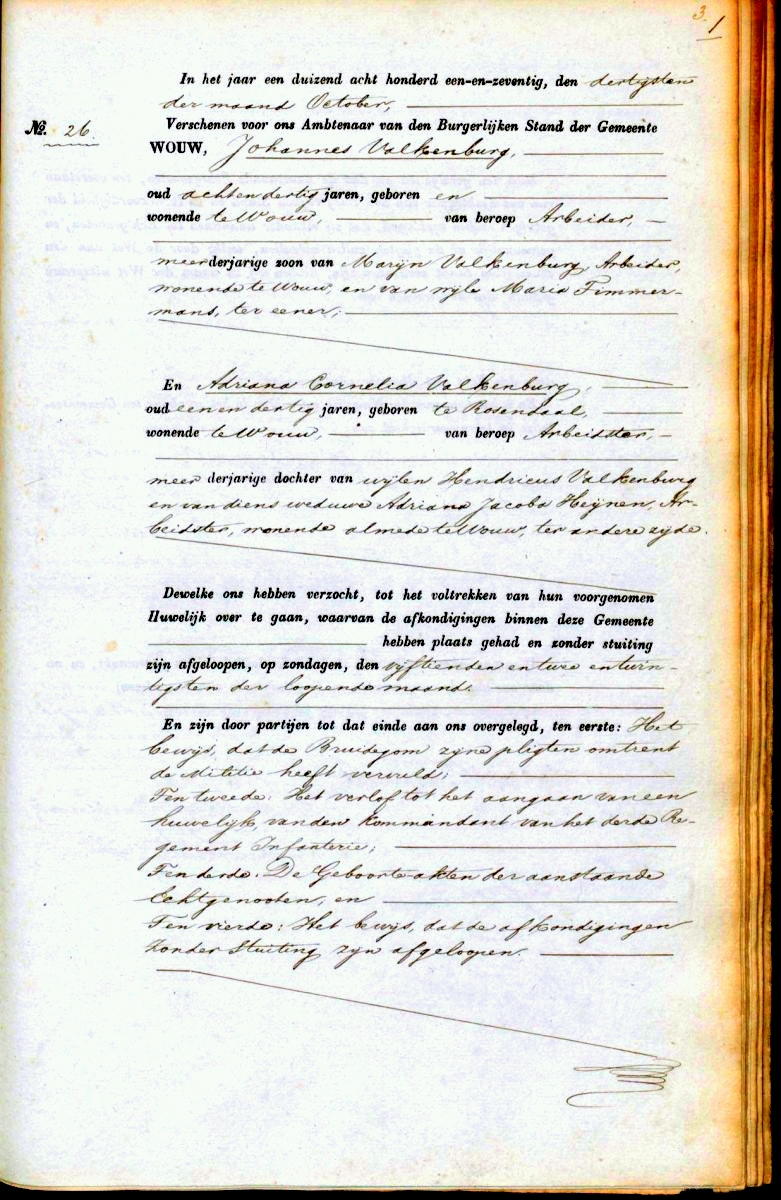 3.
1
In het jaar een duizend acht honderd een-en-zeventig, den dertigsten
der maand October,
No. 26.
Verschenen voor ons Ambtenaar van den Burgerlijken Stand der Gemeente
WOUW, Johannes Valkenburg,
oud acht en dertig jaren, geboren en
wonende te Wouw, van beroep Arbeider,
meerderjarige zoon van Marijn Valkenburg, Arbeider,
wonende te Wouw, en van wijle Maria Timmer-
mans, ter eener;
En Adriana Cornelia Valkenburg,
oud een en dertig jaren, geboren te Rosendaal,
wonende te Wouw, van beroep Arbeidster,
meer derjarige dochter van wijlen Hendricus Valkenburg
en van diens weduwe Adriana Jacoba Heijnen, Ar-
beidster, wonende almede te Wouw, ter andere zijde.
Dewelke ons hebben verzocht, tot het voltrekken van hun voorgenomen
Huwelijk over te gaan, waarvan de afkondigingen binnen deze Gemeente
hebben plaats gehad en zonder stuiting
zijn afgeloopen, op zondagen, den vijftienden en twee en twin-
tigsten der loopende maand.
En zijn door partijen tot dat einde aan ons overgelegd, ten eerste: Het
bewijs, dat de Bruidegom zijne pligten omtrent
de Militie heeft vervuld;
Ten tweede: Het verlof tot het aangaan van een
huwelijk, van den Kommandant van het derde Re-
gement Infanterie;
Ten derde: De Geboorte akten der aanstaande
Echtgenooten, en
Ten vierde: Het bewijs, dat de afkondigingen
zonder Stuiting zijn afgeloopen.